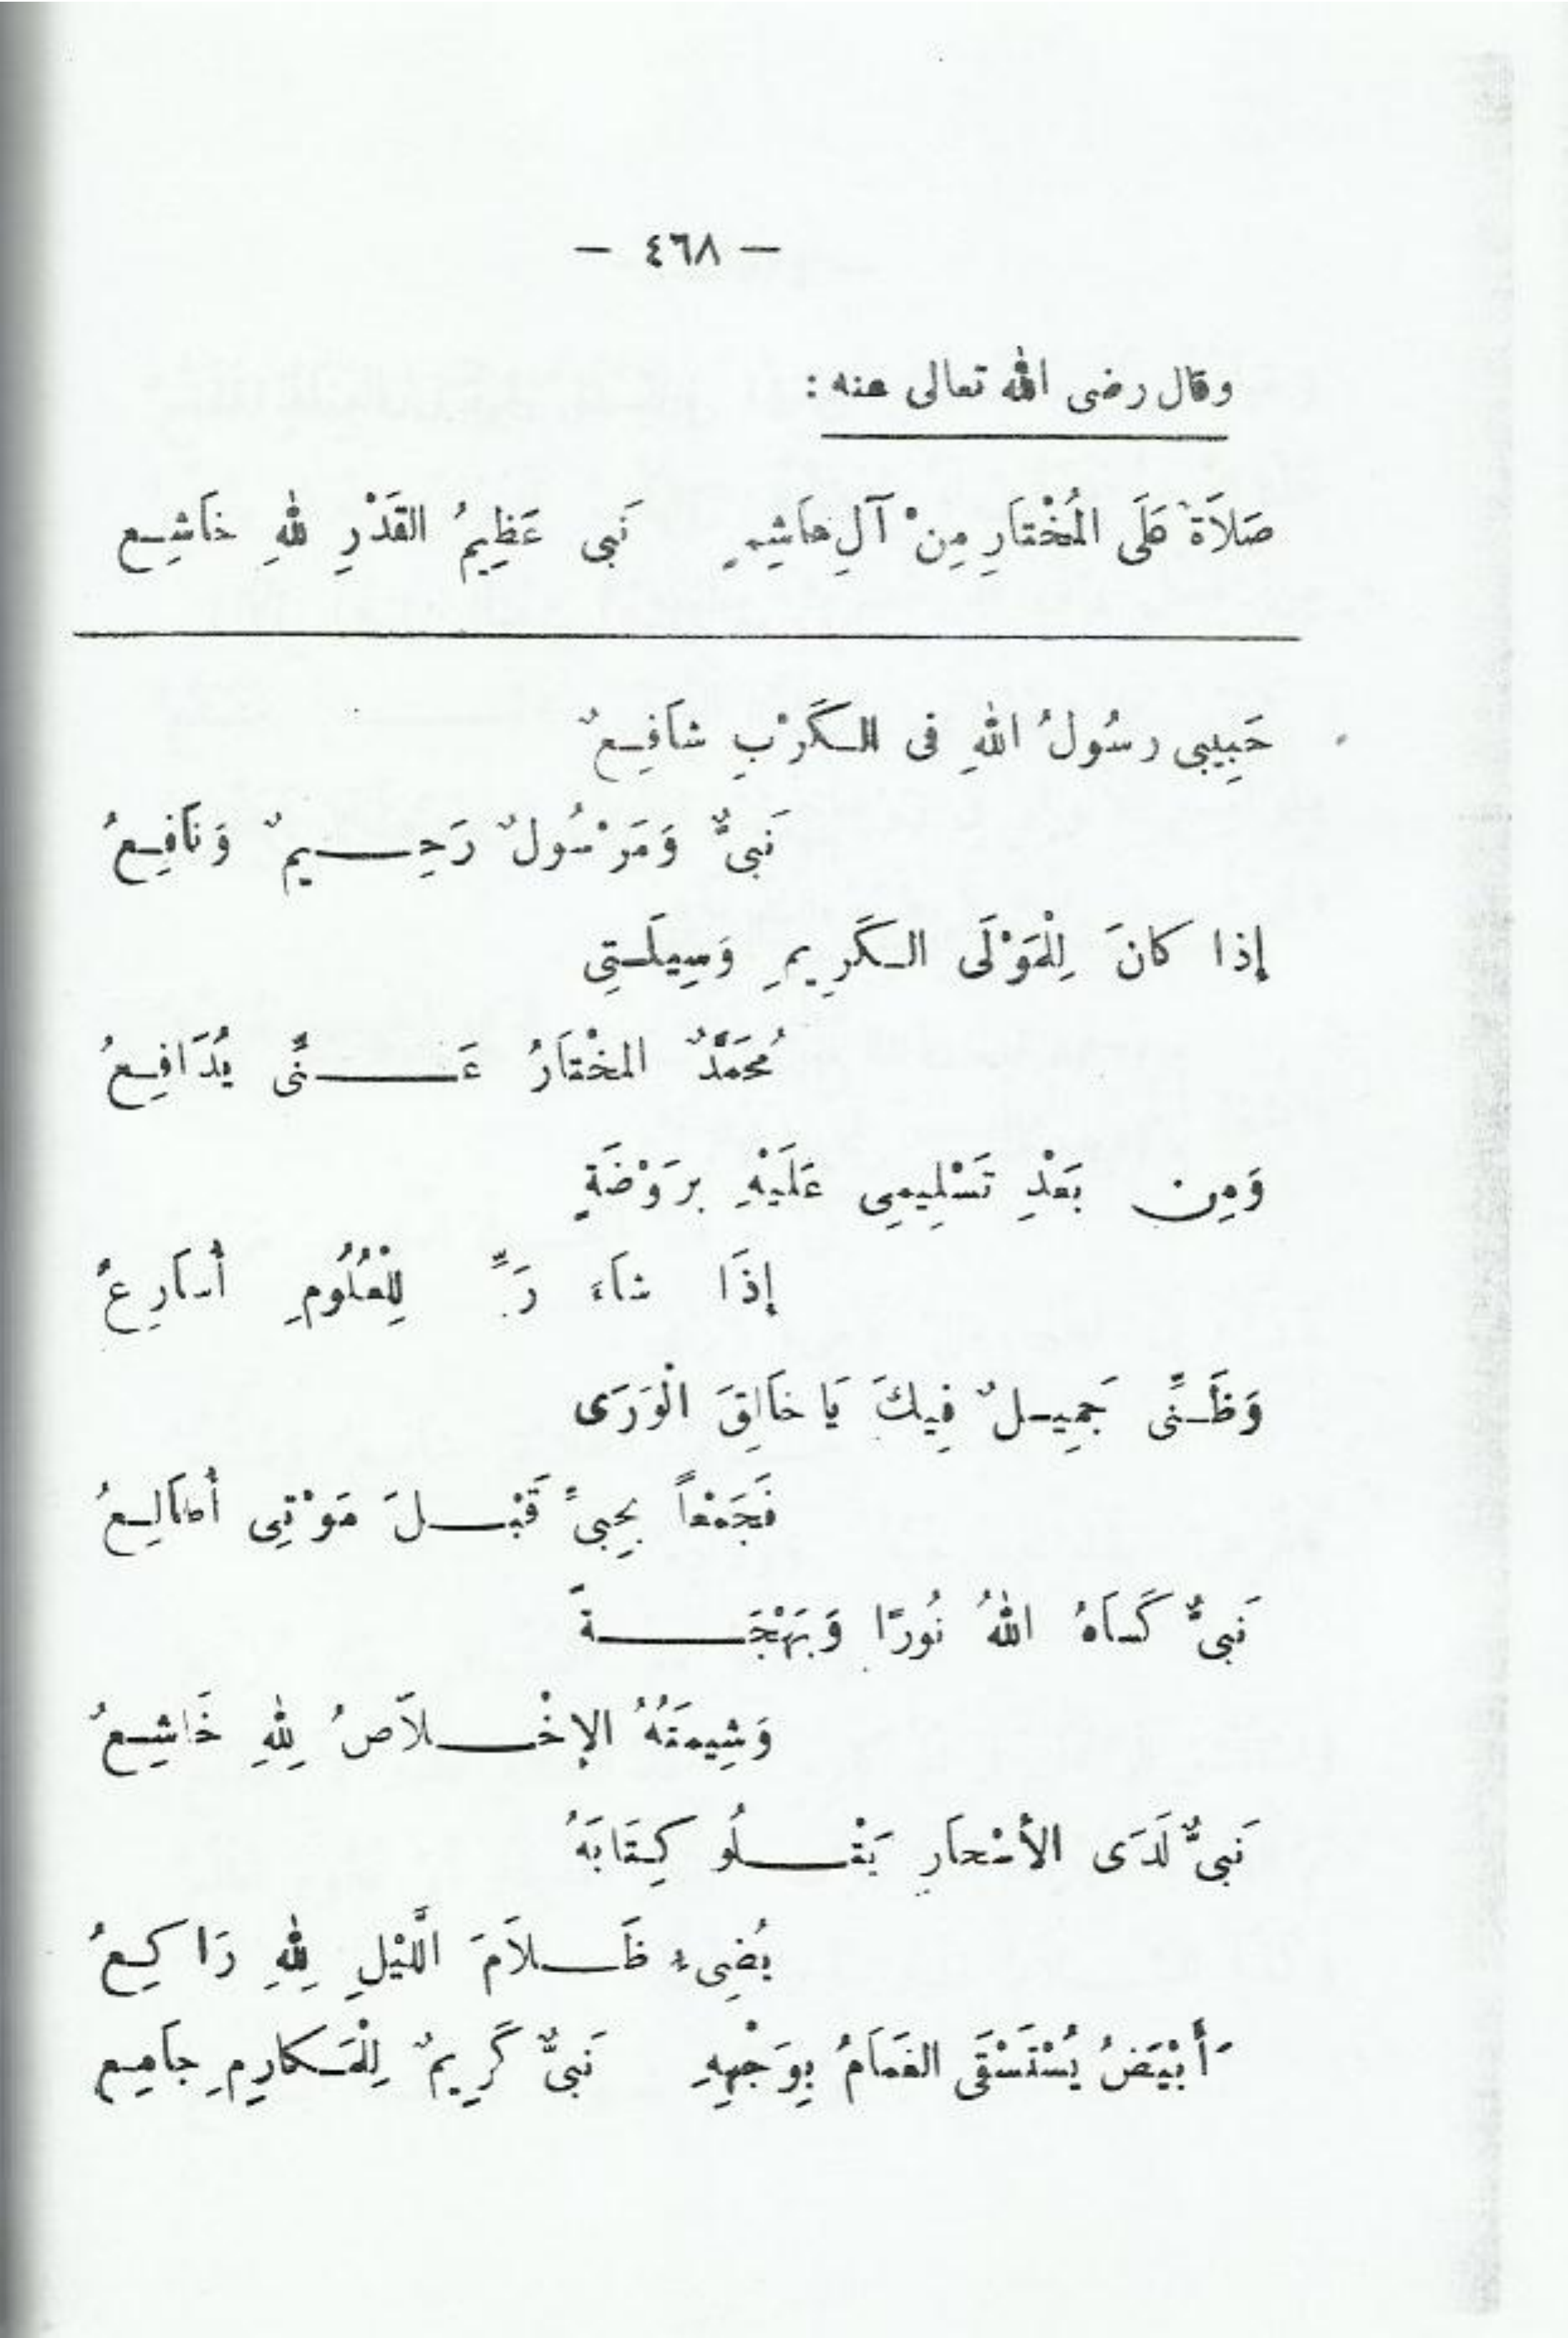 — ٤٦٨ —
وقال رضى الله تعالى عنه :
صَلاَةٌ عَلَى المُخْتَارِ مِنْ آلِ هَاشِمٍ نَبى عَظِيمُ القَدْرِ لِلهِ خَاشِع
حَبِيبى رسُولُ اللهِ فى الكَرْبِ شاَفِعٌ
نَبىٌّ وَمَرْسُولٌ رَحِيمٌ وَنَافِعُ
إذا كانَ لِلْمَوْلَى الكَرِيمِ وَسِيلَتِى
مُحمَّدٌ المخْتَارُ عَنِّى يُدَافِعُ
وَمِن بَعْدِ تَسْلِيمِى عَلَيْهِ برَوْضَةٍ
إِذَا شاَءَ رَبِّ لِلْعُلُومِ أُسَارِعُ
وَظَنِّى جَمِيلٌ فِيكَ يَا خَالِقَ الْوَرَى
فَجَمْعاً بِحِبىِّ قَبْلَ مَوْتِى أُطَالِعُ
نَبىٌّ كَسَاهُ اللهُ نُورًا وَبَهْجَةً
وَشِيمَتُهُ الإِخْلاَصُ لِلهِ خَاشِعُ
نَبىٌّ لَدَى الأَسْحَارِ يَتْلُو كِتَابَهُ
يُضِىءُ ظَلاَمَ اللَّيْلِ لِلهِ رَاكِعُ
وَأَبْيَضُ يُسْتَسْقَى الغَمَامُ بِوَجْهِهِ نَبىٌّ كَرِيمٌ لِلْمَكارِمِ جاَمِع